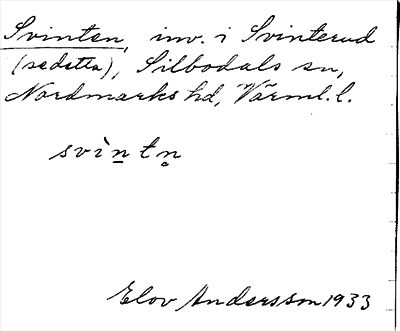 Svinten, inv. i Svinterud
(se detta), Silbodals sn,
Nordmarks hd, Värml. l.
svìn̲tn̥
Elov Andersson 1933